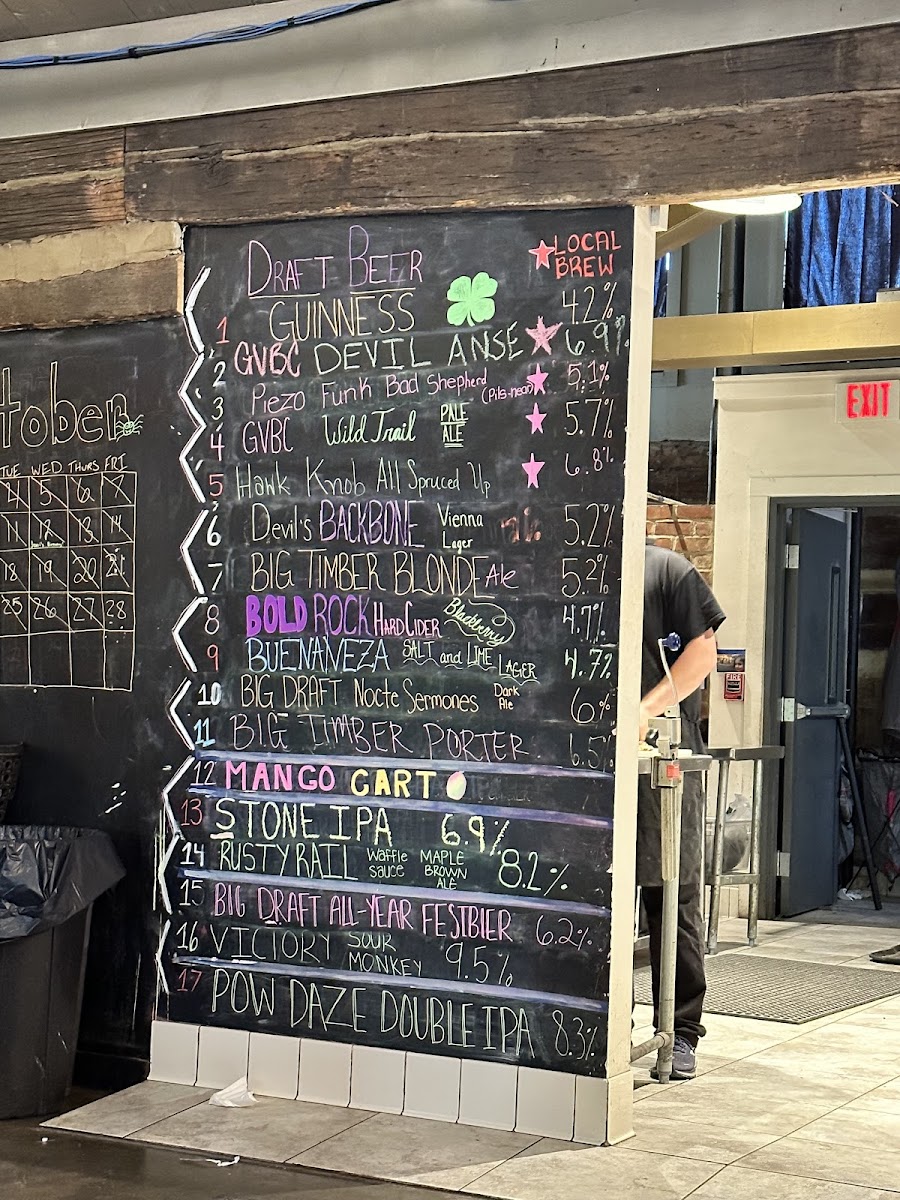 DRAFT BEER
★ LOCAL BREW
1 GUINNESS 4.2%
2 GVBC DEVIL ANSE ★ 6.9%
3 Piezo Funk Bad Shepherd (Pils-near) ★ 5.1%
4 GVBC Wild Trail PALE ALE ★ 5.7%
5 Hawk Knob All Spruced Up ★ 6.8%
6 Devil's BACKBONE Vienna Lager 5.2%
7 BIG TIMBER BLONDE Ale 5.2%
8 BOLD ROCK HARD CIDER Blackberry 4.7%
9 BUENAVEZA SALT and LIME LAGER 4.7%
10 BIG DRAFT Nocte Sermones Dark Ale 6%
11 BIG TIMBER PORTER 6.5%
12 MANGO CART
13 STONE IPA 6.9%
14 RUSTY RAIL Waffle sauce MAPLE BROWN ALE 8.2%
15 BIG DRAFT ALL-YEAR FESTBIER 6.2%
16 VICTORY SOUR MONKEY 9.5%
17 POW DAZE DOUBLE IPA 8.3%
tober
TUE WED THURS FRI
4 5 6 7
11 12 13 14
18 19 20 21
25 26 27 28
EXIT
FIRE